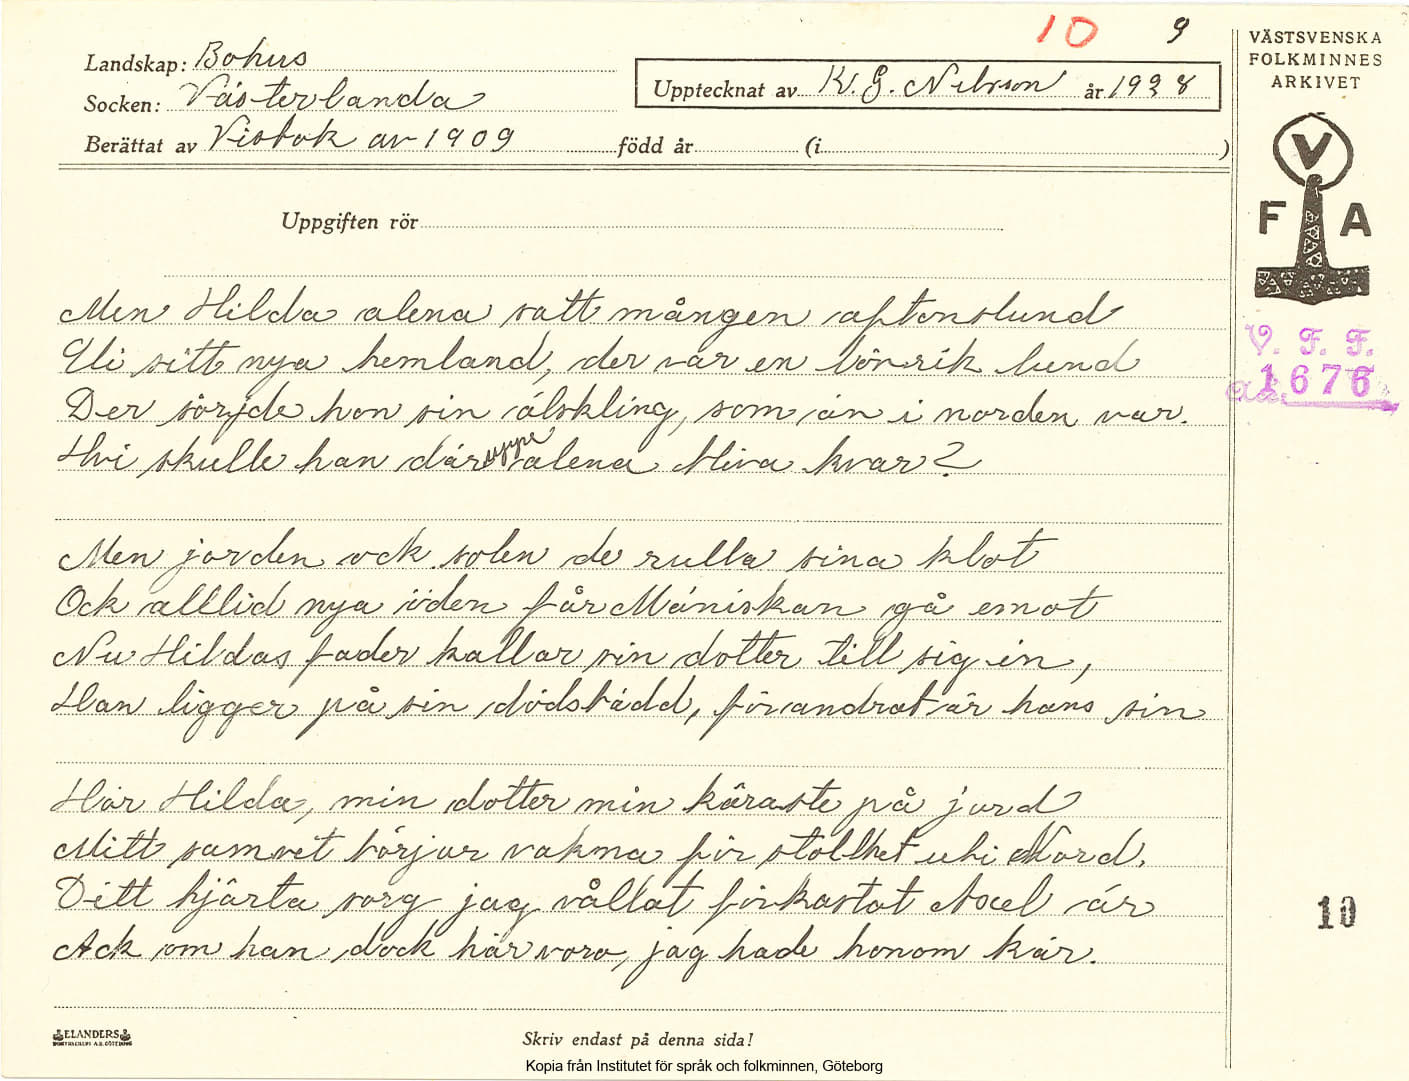 10 9
Landskap: Bohus
Socken: Västerlanda
Berättat av Visbok av 1909 född år (i )
Upptecknat av K. G. Nilsson år 1928
VÄSTSVENSKA
FOLKMINNES
ARKIVET
V
F A
V. F. F.
1676
Uppgiften rör
Men Hilda alena satt mången aftonstund
Uti sitt nya hemland, der var en lövrik lund
Der sörjde hon sin älskling, som än i norden var.
Hvi skulle han där uppe alena bliva kvar?
Men jorden ock solen de rulla sina klot
Ock alltid nya öden får Mäniskan gå emot
Nu Hildas fader kallar sin dotter till sig in,
Han ligger på sin dödsbädd, förandrat är hans sin
Hör Hilda, min dotter min käraste på jord
Mitt samvet börjar vakna för stolthet uti Nord.
Ditt hjärta sorg jag vållat förkastat Axel är
Ack om han dock här voro, jag hade honom kär.
10
ELANDERS
Skriv endast på denna sida!
Kopia från Institutet för språk och folkminnen, Göteborg